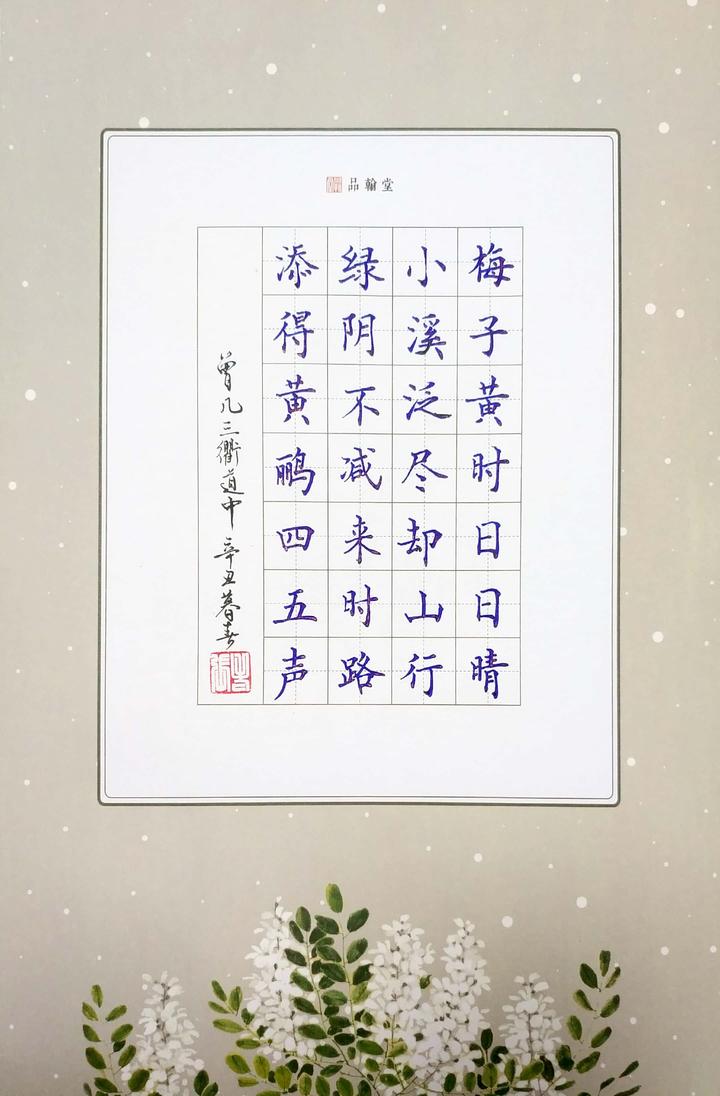 品翰堂
梅子黄时日日晴
小溪泛尽却山行
绿阴不减来时路
添得黄鹂四五声
曾几三衢道中 辛丑暮春